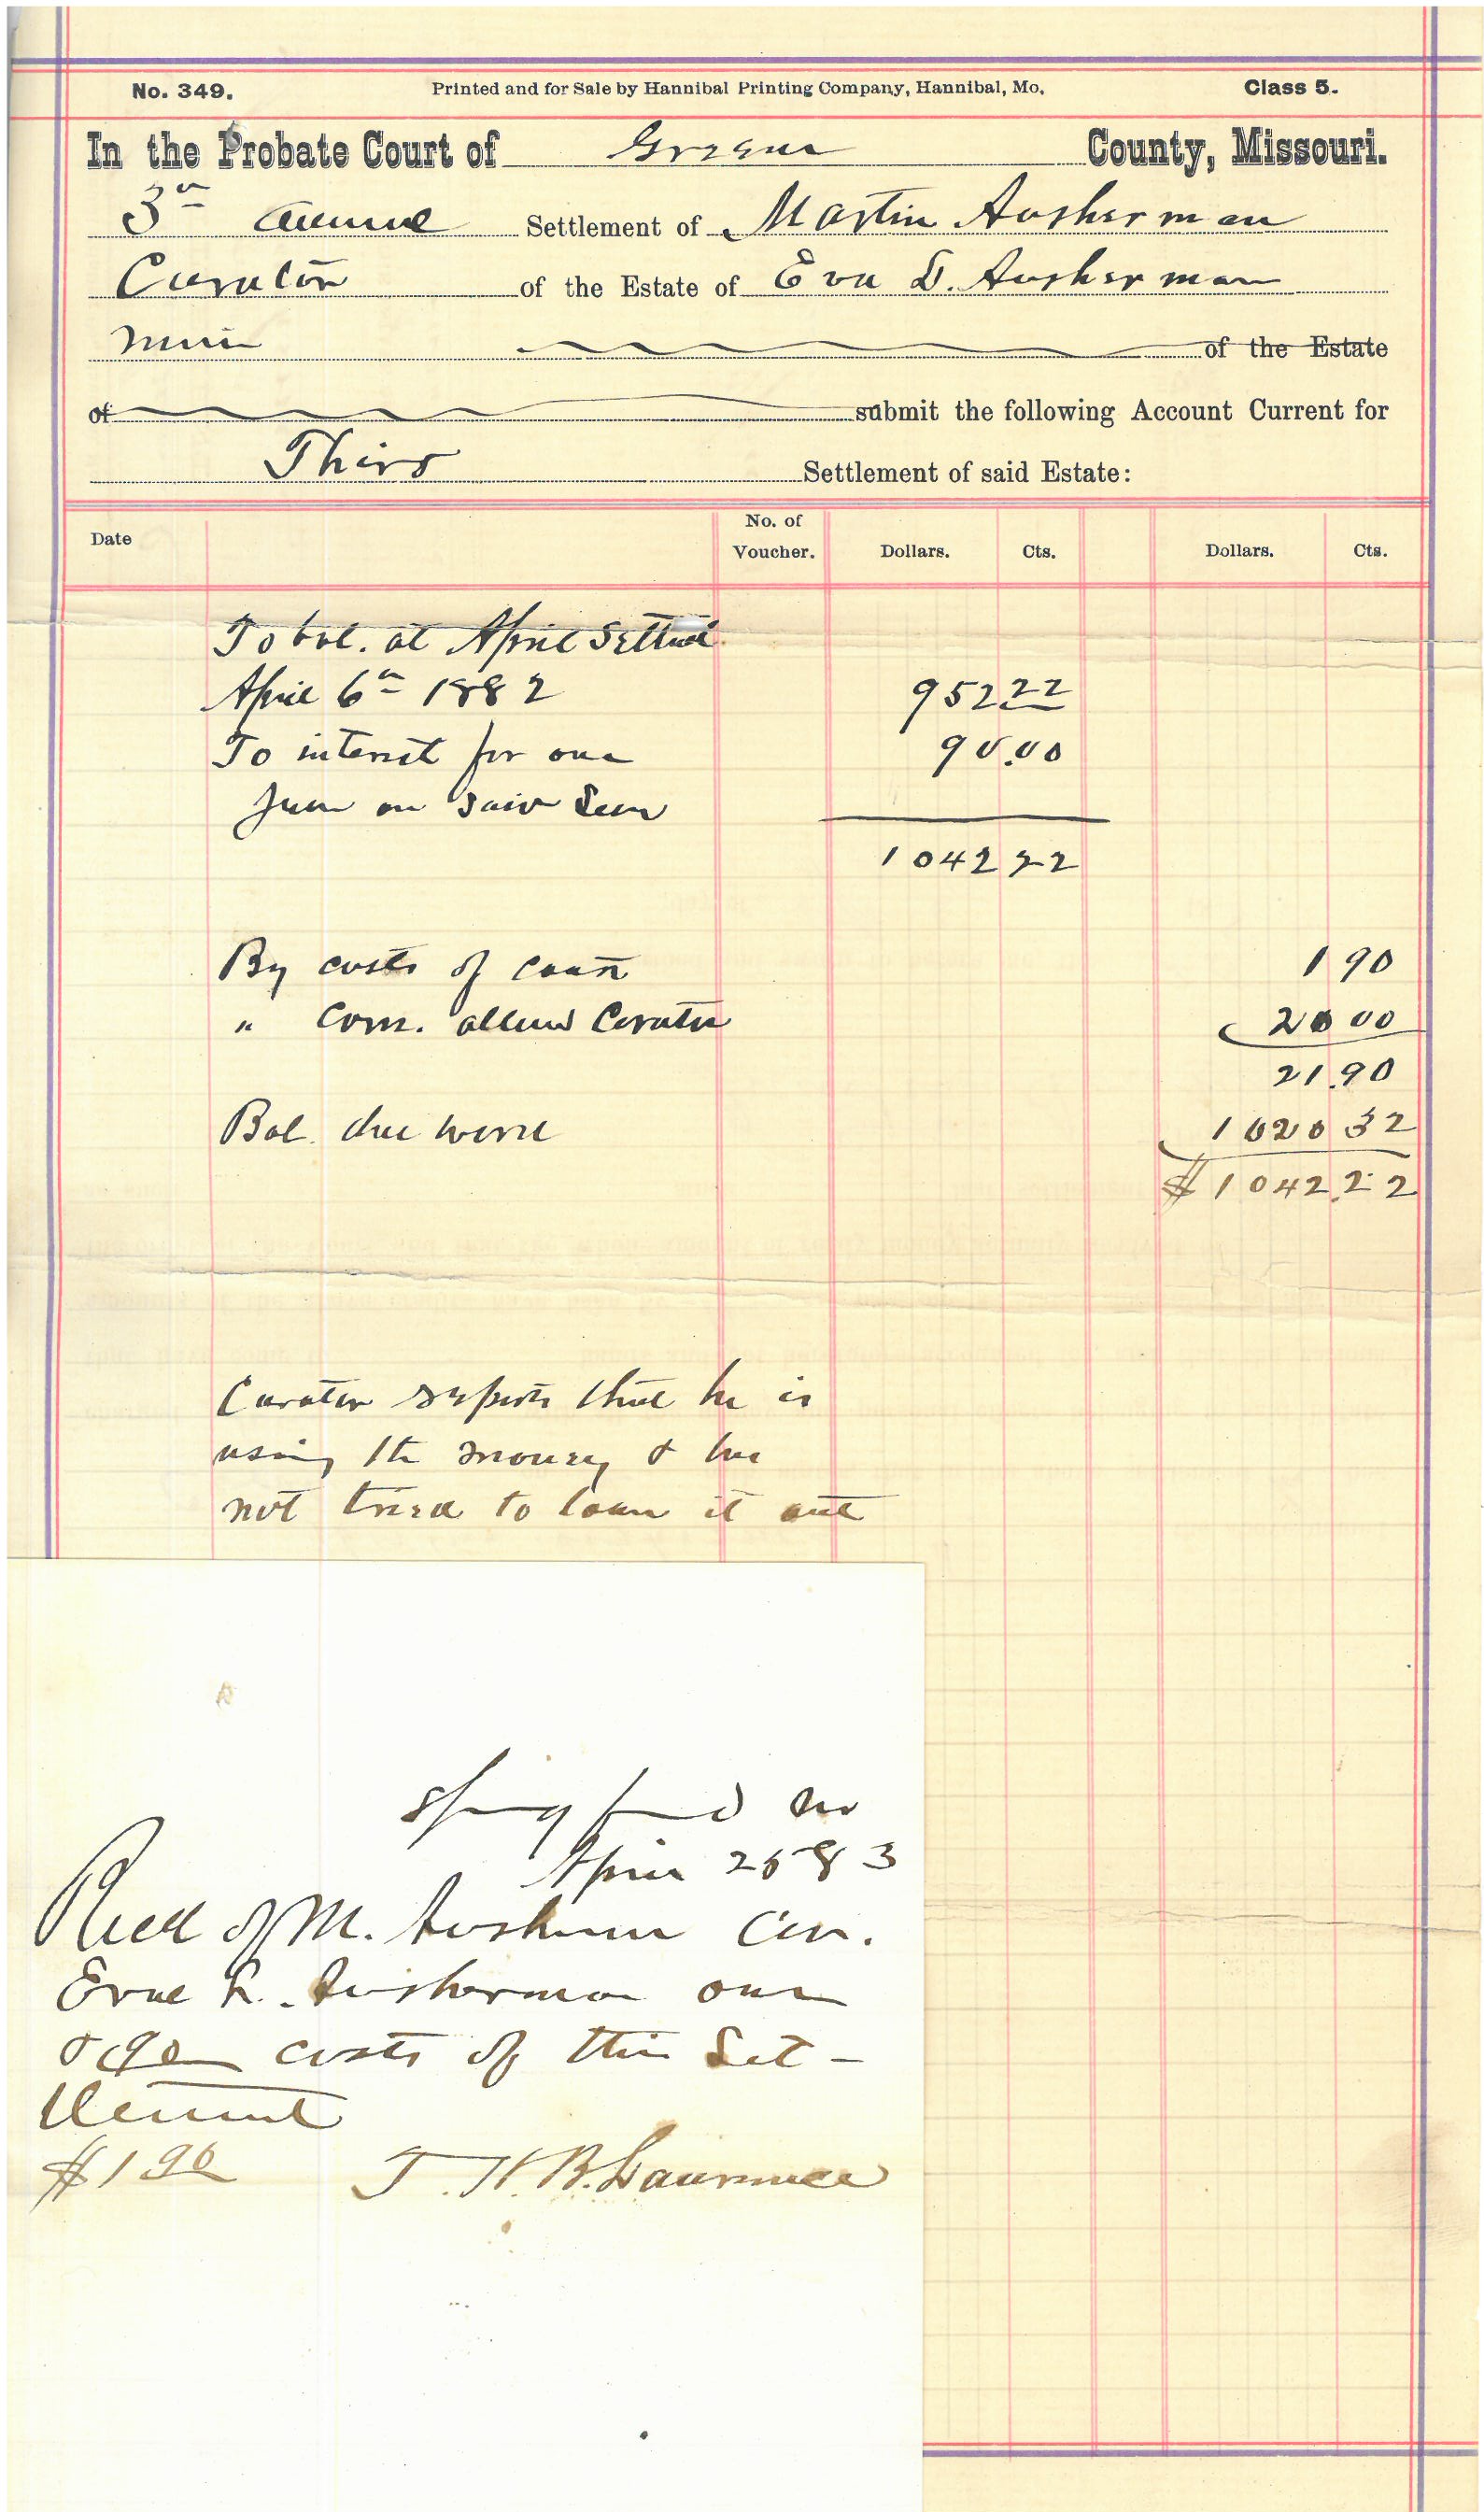 No. 349. Printed and for Sale by Hannibal Printing Company, Hannibal, Mo. Class 5.
In the Probate Court of Greene County, Missouri.
3rd annual Settlement of Martin Ausherman
Curator of the Estate of Eva L. Ausherman
minor of the Estate
of submit the following Account Current for
Third Settlement of said Estate:
Date No. of Voucher. Dollars. Cts. Dollars. Cts.
To bal. at April Settmt
April 6th 1882 952 22
To interest for one 90.00
year on said Sum
1042 22
By costs of court 1 90
" Com. allowd Curator 20 00
21.90
Bal. due ward 1020 32
$1042.22
Curator reports that he is
using the money & has
not tried to loan it out
Springfield Mo
April 25 83
Recd of M. Ausherman Cur.
Evae L. Ausherman one
& 90 costs of this Set-
tlement
$1 90 T. H. B. Lawrence